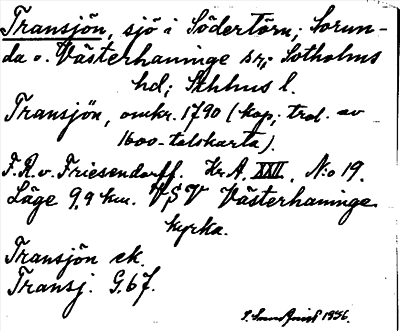 Transjön, sjö i Södertörn; Sorun-
da o. Västerhaninge sr; Sotholms
hd; Sthlms l.
Transjön, omkr. 1790 (kop; trol. av
1600-talskarta).
F.R.v. Friesendorff. Kr.A. XXII. N:o 19.
Läge 9,9 km. VSV Västerhaninge
kyrka.
Transjön ek.
Transj. G.bf.
1936.